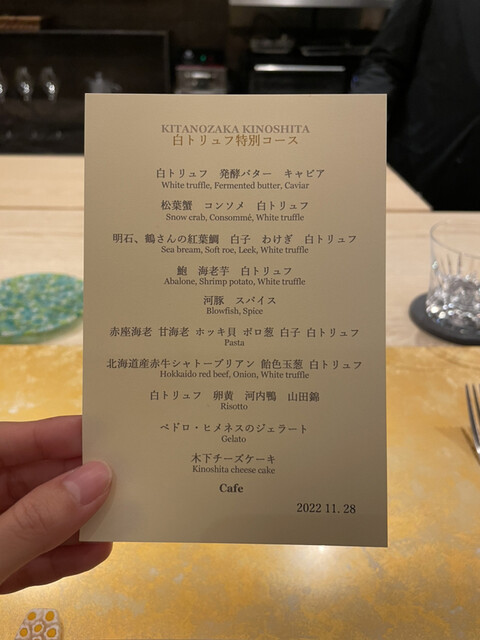 KITANOZAKA KINOSHITA
白トリュフ特別コース
白トリュフ　発酵バター　キャビア
White truffle, Fermented butter, Caviar
松葉蟹　コンソメ　白トリュフ
Snow crab, Consommé, White truffle
明石、鶴さんの紅葉鯛　白子　わけぎ　白トリュフ
Sea bream, Soft roe, Leek, White truffle
鮑　海老芋　白トリュフ
Abalone, Shrimp potato, White truffle
河豚　スパイス
Blowfish, Spice
赤座海老 甘海老 ホッキ貝 ポロ葱 白子 白トリュフ
Pasta
北海道産赤牛シャトーブリアン 飴色玉葱 白トリュフ
Hokkaido red beef, Onion, White truffle
白トリュフ　卵黄　河内鴨　山田錦
Risotto
ペドロ・ヒメネスのジェラート
Gelato
木下チーズケーキ
Kinoshita cheese cake
Cafe
2022 11. 28